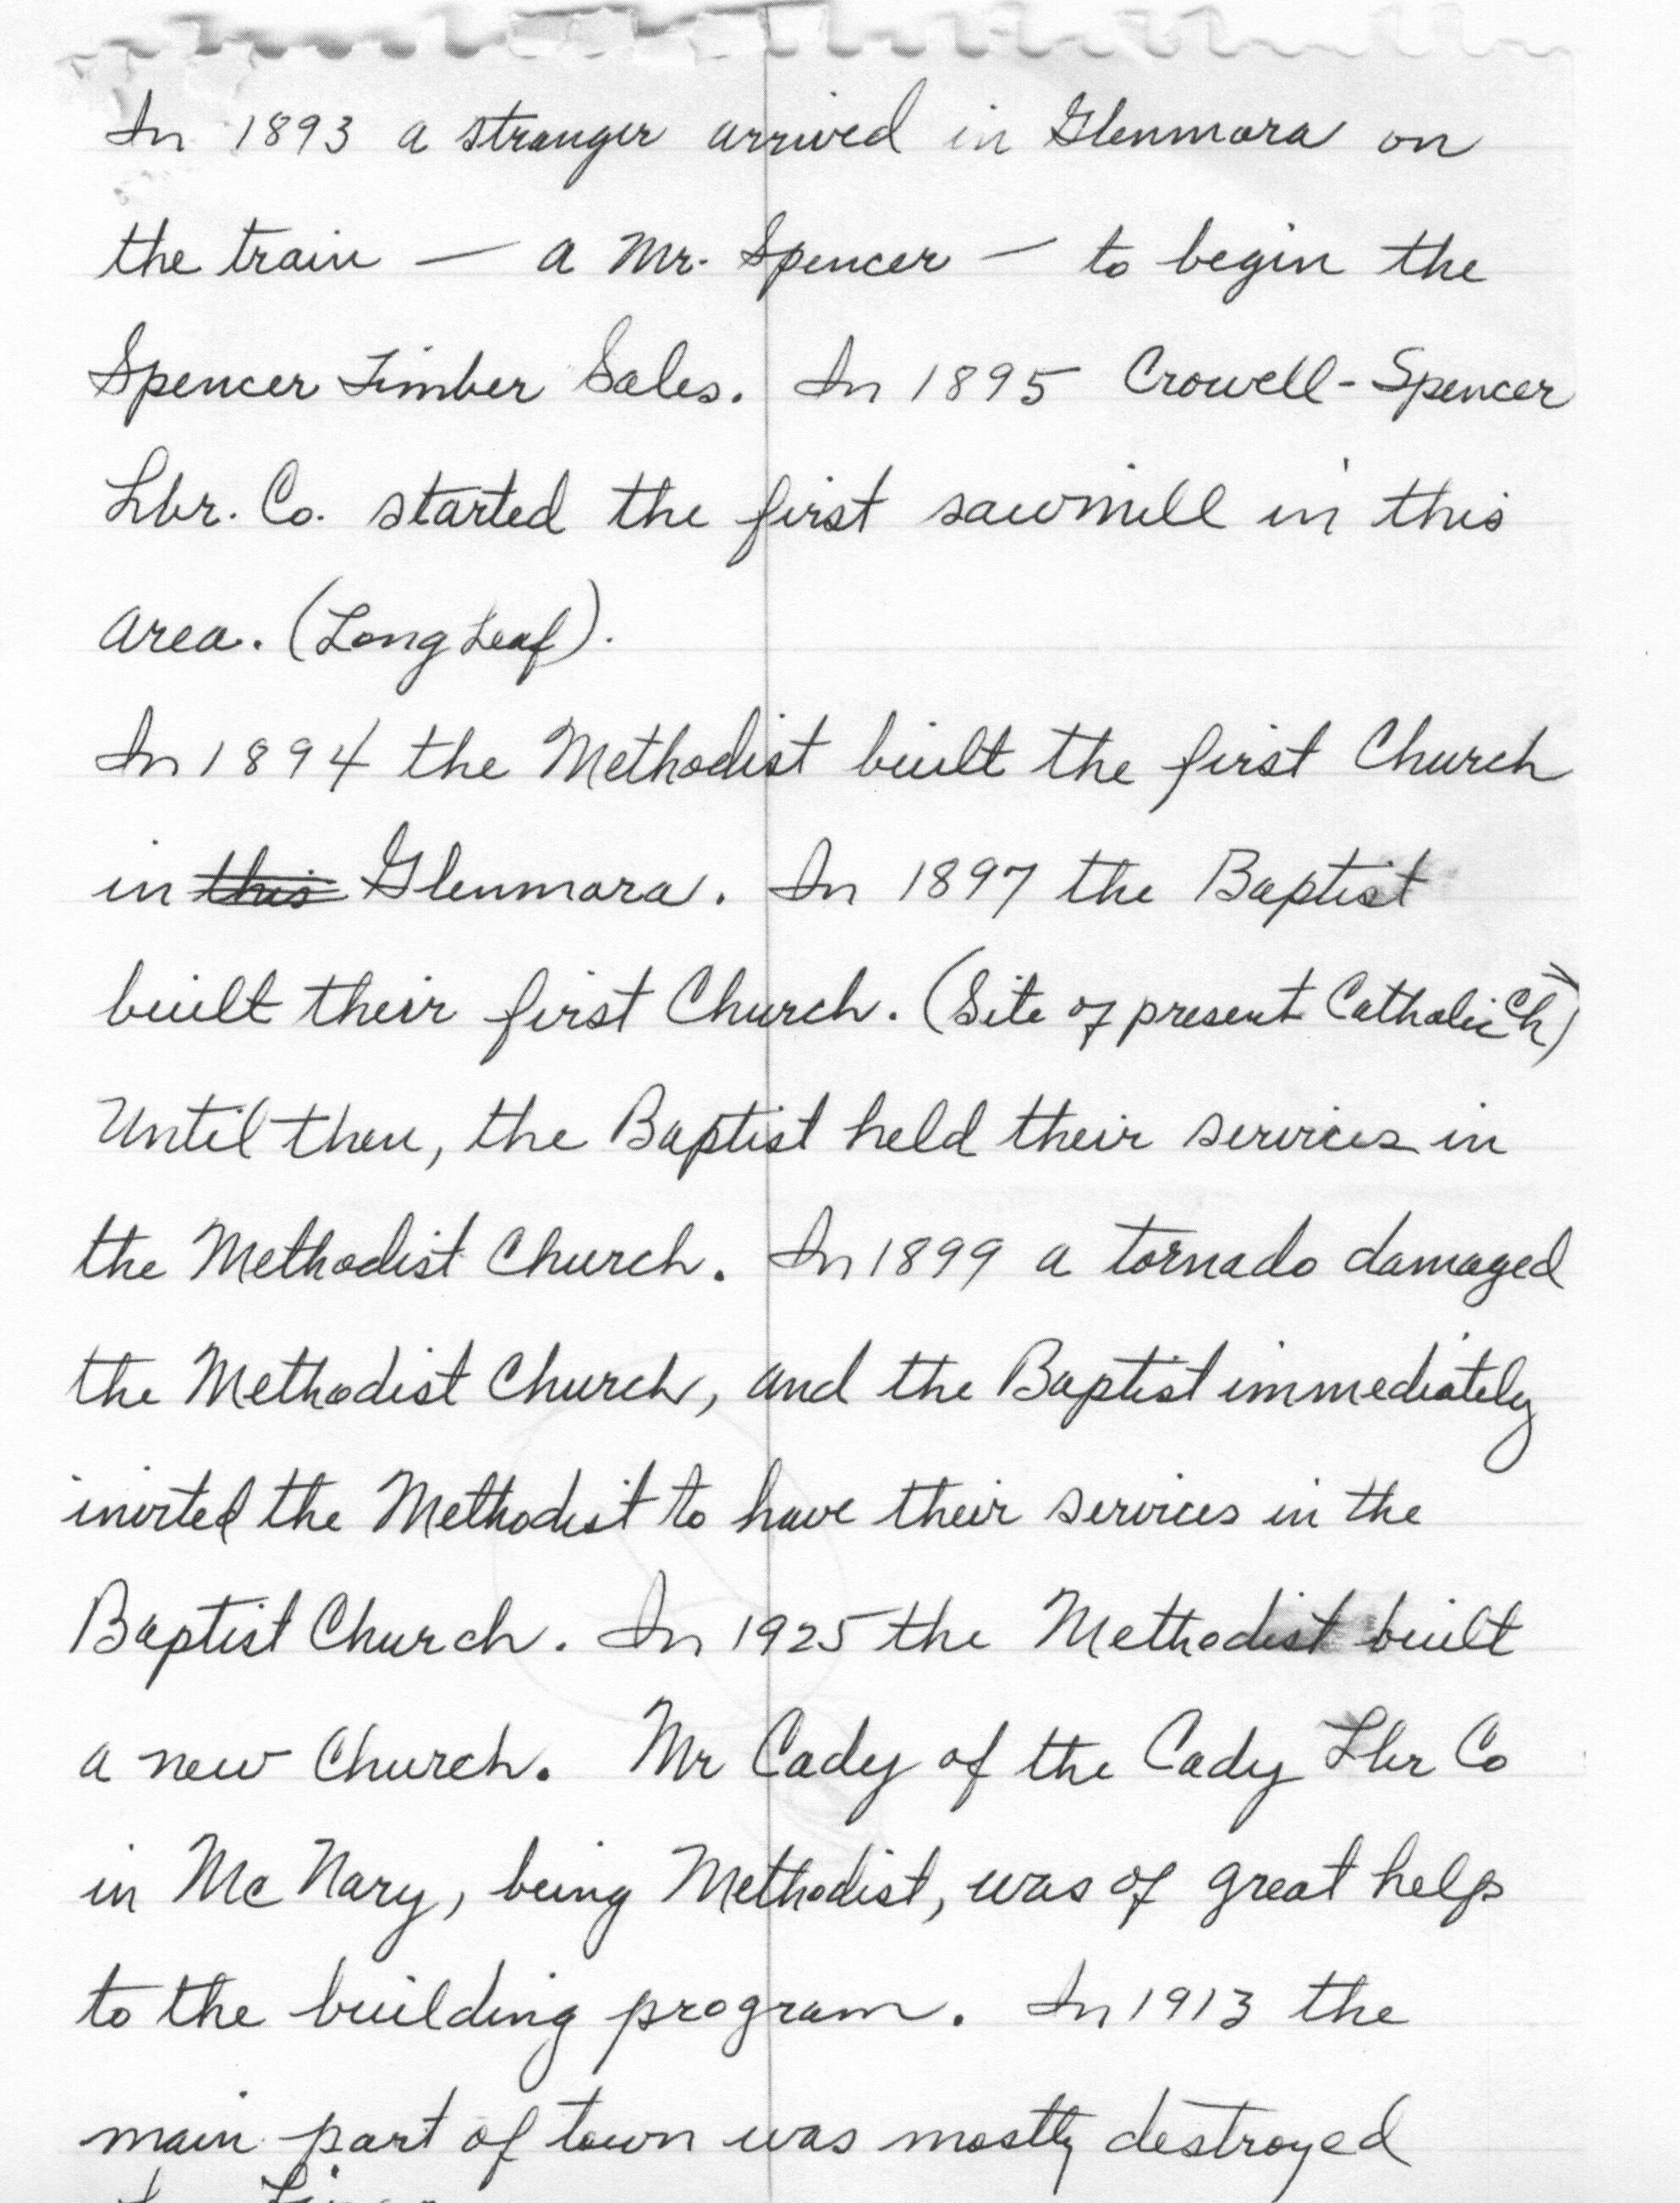 In 1893 a stranger arrived in Glenmora on
the train — a Mr. Spencer — to begin the
Spencer Timber Sales. In 1895 Crowell-Spencer
Lbr. Co. started the first sawmill in this
area. (Long Leaf).
In 1894 the Methodist built the first Church
in this Glenmora. In 1897 the Baptist
built their first Church. (Site of present Catholic Ch)
Until then, the Baptist held their services in
the Methodist Church. In 1899 a tornado damaged
the Methodist Church, and the Baptist immediately
invited the Methodist to have their services in the
Baptist Church. In 1925 the Methodist built
a new Church. Mr Cady of the Cady Lbr Co
in Mc Nary, being Methodist, was of great help
to the building program. In 1913 the
main part of town was mostly destroyed